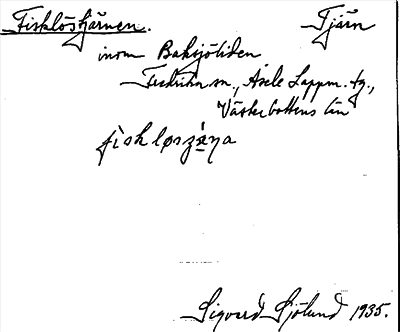 Fisklöstjärnen. Tjärn
inom Baksjöliden
Fredrika sn., Åsele Lappm. tg.,
Västerbottens län
fiskløsʒæ̀ṇa
Sigvard Sjölund 1935.